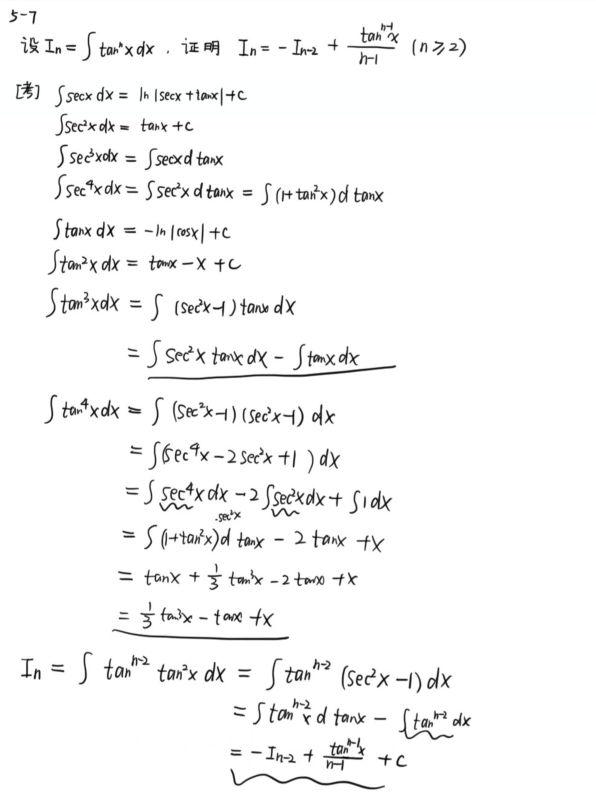 5-7
设 Iₙ = ∫ tanⁿx dx . 证明 Iₙ = - Iₙ₋₂ + tanⁿ⁻¹x / (n-1) (n ≥ 2)
[考] ∫ secx dx = ln |secx + tanx| + c
∫ sec²x dx = tanx + c
∫ sec³x dx = ∫ secx d tanx
∫ sec⁴x dx = ∫ sec²x d tanx = ∫ (1+tan²x) d tanx
∫ tanx dx = -ln |cosx| + c
∫ tan²x dx = tanx - x + c
∫ tan³x dx = ∫ (sec²x-1) tanx dx
= ∫ sec²x tanx dx - ∫ tanx dx
∫ tan⁴x dx = ∫ (sec²x-1)(sec²x-1) dx
= ∫ (sec⁴x - 2sec²x + 1) dx
= ∫ sec⁴x dx - 2 ∫ sec²x dx + ∫ 1 dx
.sec²x
= ∫ (1+tan²x) d tanx - 2 tanx + x
= tanx + 1/3 tan³x - 2 tanx + x
= 1/3 tan³x - tanx + x
Iₙ = ∫ tanⁿ⁻² tan²x dx = ∫ tanⁿ⁻² (sec²x - 1) dx
= ∫ tanⁿ⁻²x d tanx - ∫ tanⁿ⁻² dx
= - Iₙ₋₂ + tanⁿ⁻¹x / (n-1) + c